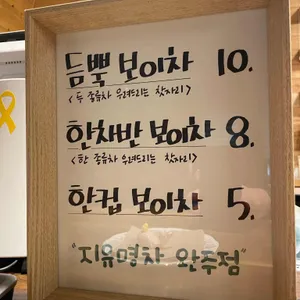 듬뿍 보이차 10.
< 두 종류차 우려드리는 찻자리 >
한차반 보이차 8.
< 한 종류차 우려드리는 찻자리 >
한컵 보이차 5.
"지유명차 완주점"